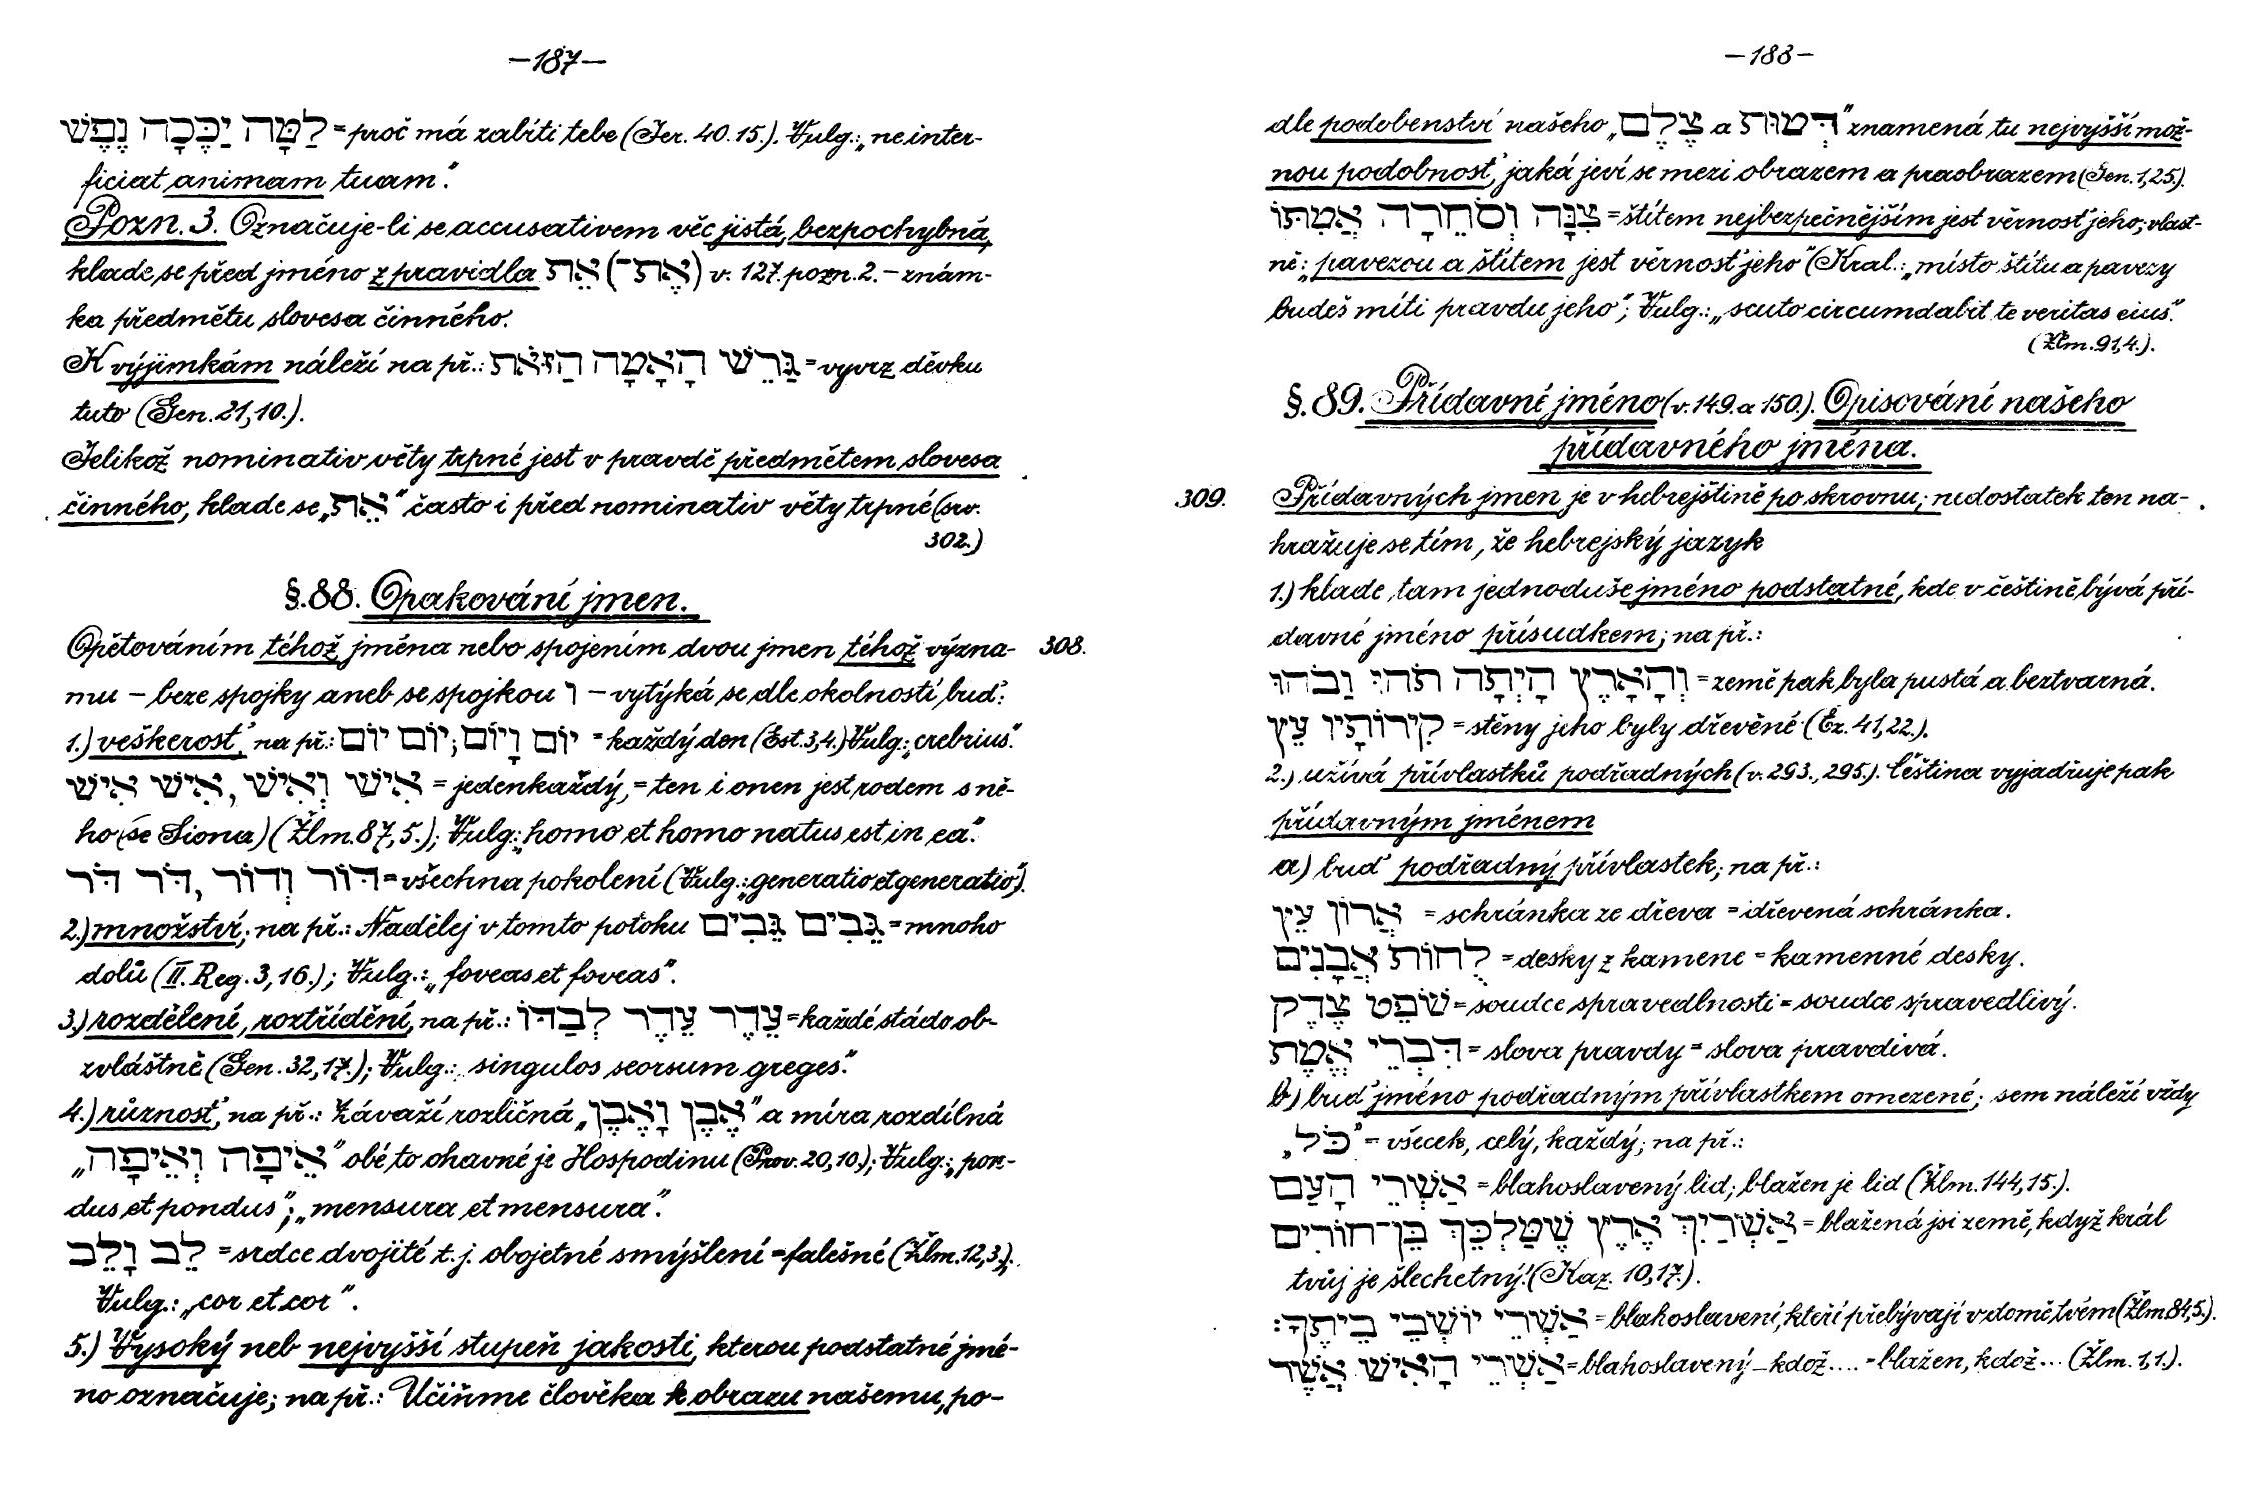 —187—
לָמָּה יַכֶּכָּה נֶפֶשׁ = proč má zabíti tebe (Jer. 40. 15.). Vulg.: „ne inter-
ficiat animam tuam".
Pozn. 3. Označuje-li se accusativem věc jistá, bezpochybná,
klade se před jméno z pravidla אֵת (אֶת־) v. 127. pozn. 2. – znám-
ka předmětu slovesa činného.
K výjimkám náleží na př.: גָּרֵשׁ הָאָמָה הַזֹּאת = vyvrz děvku
tuto (Gen. 21, 10.).
Jelikož nominativ věty trpné jest v pravdě předmětem slovesa
činného, klade se „אֵת" často i před nominativ věty trpné (srv.
302.)
§. 88. Opakování jmen.
Opětováním téhož jména nebo spojením dvou jmen téhož význa- 308.
mu – beze spojky aneb se spojkou ו – vytýká se dle okolností buď:
1.) veškerosť, na př.: יוֹם וָיוֹם; יוֹם יוֹם = každý den (Est. 3, 4.) Vulg.: „crebrius".
אִישׁ וְאִישׁ, אִישׁ אִישׁ = jedenkaždý, = ten i onen jest rodem s ně-
ho (se Siona) (Žlm. 87, 5.); Vulg.: „homo et homo natus est in ea".
דּוֹר וְדוֹר, דֹּר דֹּר = všechna pokolení (Vulg.: „generatio et generatio").
2.) množství; na př.: Nadělej v tomto potoku גֵּבִים גֵּבִים = mnoho
dolů (II. Reg. 3, 16.); Vulg.: „foveas et foveas".
3.) rozdělení, roztřídění, na př.: עֵדֶר עֵדֶר לְבַדּוֹ = každé stádo ob-
zvláštně (Gen. 32, 17.); Vulg.: „singulos seorsum greges".
4.) různosť, na př.: Závaží rozličná „אֶבֶן וָאֶבֶן" a míra rozdílná
„אֵיפָה וְאֵיפָה" obé to ohavné je Hospodinu (Prov. 20, 10.); Vulg.: „pon-
dus et pondus"; „mensura et mensura".
לֵב וָלֵב = srdce dvojité t. j. obojetné smýšlení = falešné (Žlm. 12, 3.);
Vulg.: „cor et cor".
5.) Vysoký neb nejvyšší stupeň jakosti, kterou podstatné jmé-
no označuje; na př.: Učiňme člověka k obrazu našemu, po-
—188—
dle podobenství našeho „צֶלֶם a דְּמוּת" znamená tu nejvyšší mož-
nou podobnosť, jaká jeví se mezi obrazem a praobrazem (Gen. 1, 25.).
צִנָּה וְסֹחֵרָה אֲמִתּוֹ = štítem nejbezpečnějším jest věrnosť jeho; vlast-
ně: „pavezou a štítem jest věrnosť jeho" (Kral.: „místo štítu a pavezy
budeš míti pravdu jeho"; Vulg.: „scuto circumdabit te veritas eius".
(Žlm. 91, 4.).
§. 89. Přídavné jméno (v. 149. a 150.). Opisování našeho
přídavného jména.
309. Přídavných jmen je v hebrejštině po skrovnu; nedostatek ten na-
hražuje se tím, že hebrejský jazyk
1.) klade tam jednoduše jméno podstatné, kde v češtině bývá pří-
davné jméno přísudkem; na př.:
וְהָאָרֶץ הָיְתָה תֹהוּ וַבֹהוּ = země pak byla pustá a beztvarná.
קִירוֹתָיו עֵץ = stěny jeho byly dřevěné (Ez. 41, 22.).
2.) užívá přívlastků podřadných (v. 293., 295.). Čeština vyjadřuje pak
přídavným jménem
a) buď podřadný přívlastek; na př.:
אֲרוֹן עֵץ = schránka ze dřeva = dřevená schránka.
לֻחוֹת אֲבָנִים = desky z kamene = kamenné desky.
שֹׁפֵט צֶדֶק = soudce spravedlnosti = soudce spravedlivý.
דִּבְרֵי אֱמֶת = slova pravdy = slova pravdivá.
b) buď jméno podřadným přívlastkem omezené; sem náleží vždy
„כֹּל" = všecek, celý, každý; na př.:
אַשְׁרֵי הָעַם = blahoslavený lid; blažen je lid (Žlm. 144, 15.).
אַשְׁרַיִךְ אֶרֶץ שֶׁמַּלְכֵּךְ בֵּן־חוֹרִים = blažená jsi země, když král
tvůj je šlechetný! (Kaz. 10, 17.).
אַשְׁרֵי יוֹשְׁבֵי בֵיתֶךָ: = blahoslavení, kteří přebývají v domě tvém (Žlm. 84, 5.).
אַשְׁרֵי הָאִישׁ אֲשֶׁר = blahoslavený – kdož .... = blažen, kdož ... (Žlm. 1, 1.).